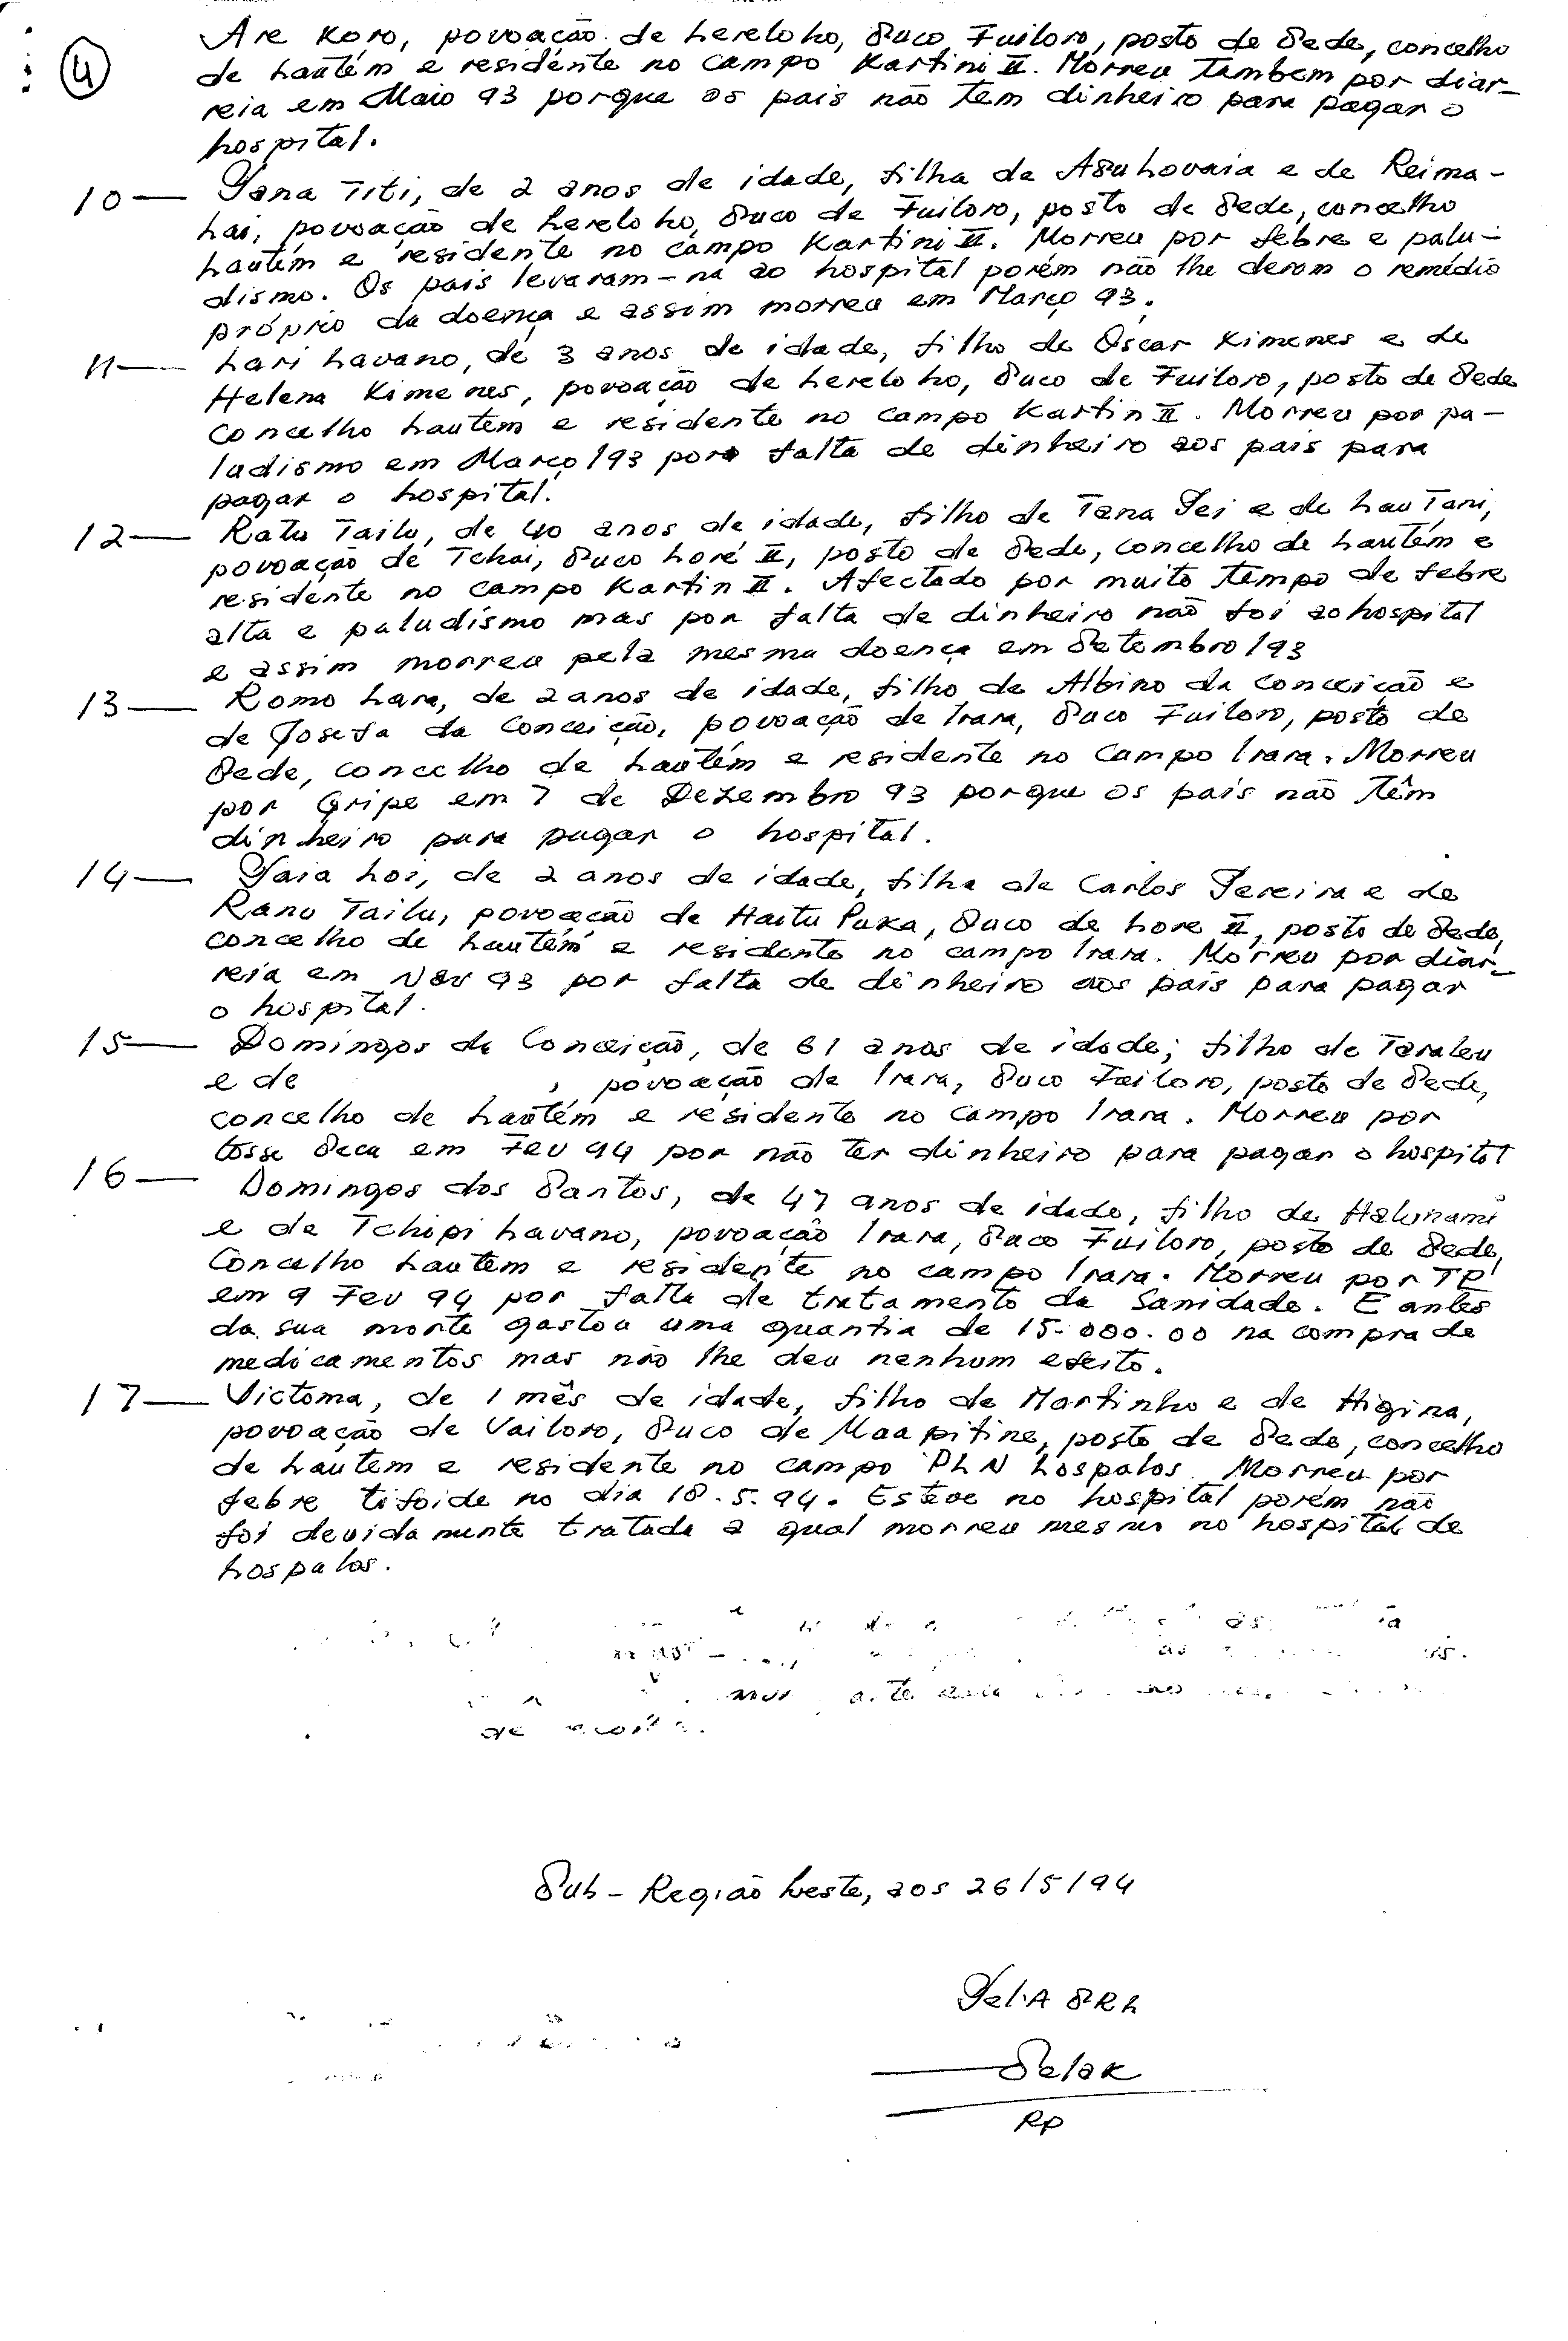 4
Are Koro, povoação de Lereloho, Suco Fuiloro, posto de Sede, concelho
de Lautém e residente no campo Kartini II. Morreu tambem por diar-
reia em Maio 93 porque os pais não tem dinheiro para pagar o
hospital.
10 — Pana Titi, de 2 anos de idade, filha de Asuhovaia e de Reima-
Lai, povoação de Lereloho, Suco de Fuiloro, posto de Sede, concelho
Lautém e residente no campo Kartini II. Morreu por febre e palu-
dismo. Os pais levaram-na ao hospital porém não lhe deram o remédio
próprio da doença e assim morreu em Março 93.
11 — Lari Lavano, de 3 anos de idade, filho de Oscar Ximenes e de
Helena Ximenes, povoação de Lereloho, Suco de Fuiloro, posto de Sede
concelho Lautem e residente no campo Kartin II. Morreu por pa-
ludismo em Março/93 por falta de dinheiro aos pais para
pagar o hospital.
12 — Ratu Tailu, de 40 anos de idade, filho de Tana Pei e de Lau Tani,
povoação de Tchai, Suco Loré II, posto de Sede, concelho de Lautém e
residente no campo Kartin II. Afectado por muito tempo de febre
alta e paludismo mas por falta de dinheiro não foi ao hospital
e assim morreu pela mesma doença em Setembro/93
13 — Romo Lara, de 2 anos de idade, filho de Albino da Conceição e
de Josefa da Conceição, povoação de Irara, Suco Fuiloro, posto de
Sede, concelho de Lautém e residente no campo Irara. Morreu
por Gripe em 7 de Dezembro 93 porque os pais não têm
dinheiro para pagar o hospital.
14 — Paia Loi, de 2 anos de idade, filha de Carlos Pereira e de
Ranu Tailu, povoação de Haitu Puka, Suco de Lore II, posto de Sede,
concelho de Lautém e residente no campo Irara. Morreu por diar-
reia em Nov 93 por falta de dinheiro aos pais para pagar
o hospital.
15 — Domingos da Conceição, de 61 anos de idade; filho de Taraleu
e de , povoação de Irara, Suco Fuiloro, posto de Sede,
concelho de Lautém e residente no campo Irara. Morreu por
tosse seca em Fev 94 por não ter dinheiro para pagar o hospital
16 — Domingos dos Santos, de 47 anos de idade, filho de Halunami
e de Tchipi Lavano, povoação Irara, Suco Fuiloro, posto de Sede,
Concelho Lautem e residente no campo Irara. Morreu por TP
em 9 Fev 94 por falta de tratamento da Sanidade. E antes
da sua morte gastou uma quantia de 15.000.00 na compra de
medicamentos mas não lhe deu nenhum efeito.
17 — Victoma, de 1 mês de idade, filho de Martinho e de Higina,
povoação de Vailoro, Suco de Maapitine, posto de Sede, concelho
de Lautem e residente no campo PLN Lospalos. Morreu por
febre tifoide no dia 18.5.94. Esteve no hospital porém não
foi devidamente tratada a qual morreu mesmo no hospital de
Lospalos.
Sub-Região Leste, aos 26/5/94
Pel'A SRL
Selak
RP